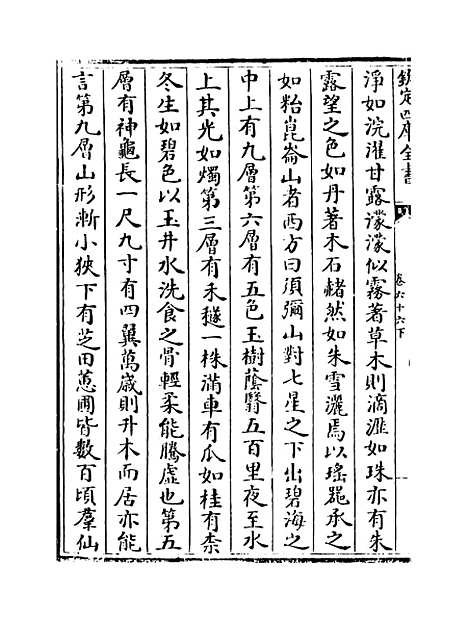 欽定四庫全書
卷六十六下
淨如浣濯甘露濛濛似霧著草木則滴瀝如珠亦有朱
露望之色如丹著木石赭然如朱雪灑焉以瑤器承之
如粘崑崙山者西方曰須彌山對七星之下出碧海之
中上有九層第六層有五色玉樹蔭翳五百里夜至水
上其光如燭第三層有禾穟一株滿車有瓜如桂有柰
冬生如碧色以玉井水洗食之骨輕柔能騰虛也第五
層有神龜長一尺九寸有四翼萬歲則升木而居亦能
言第九層山形漸小狹下有芝田蕙圃皆數百頃羣仙